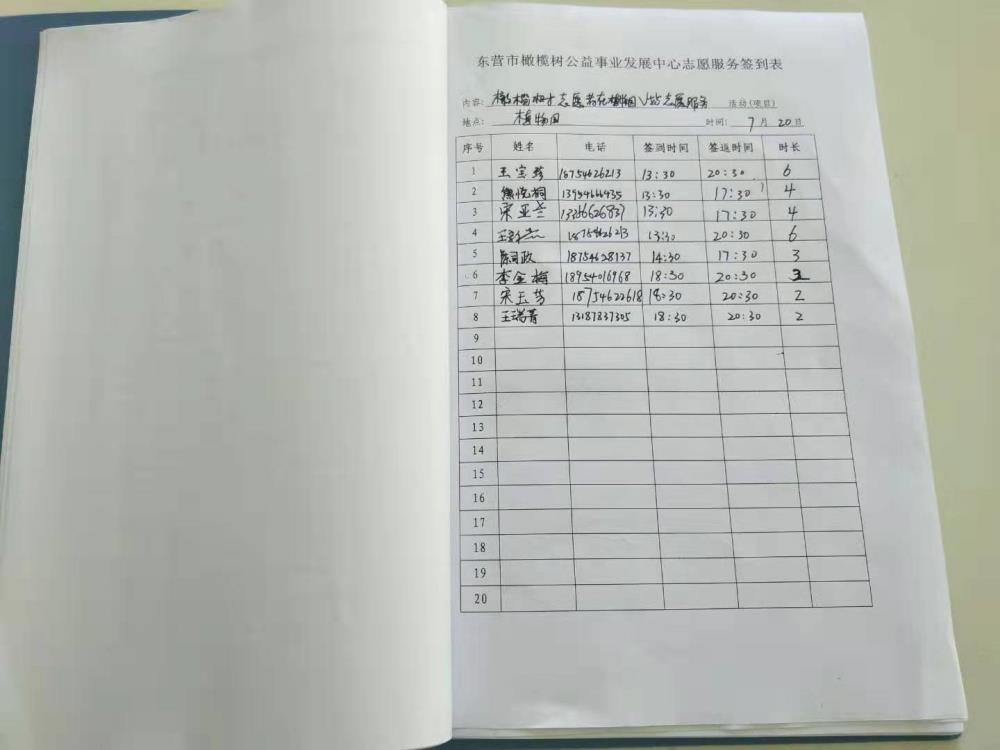 东营市橄榄树公益事业发展中心志愿服务签到表
内容: 橄榄树志愿者在植物园V站志愿服务 活动(项目)
地点: 植物园 时间: 7月20日
序号 姓名 电话 签到时间 签退时间 时长
1 王宝珍 18754626213 13:30 20:30 6
2 熊悦桐 13954666935 13:30 17:30 4
3 宋亚兰 13346626837 13:30 17:30 4
4 18754626213 13:30 20:30 6
5 陈司政 18754628137 14:30 17:30 3
6 李金梅 18954016968 18:30 20:30 2
7 宋玉芳 18754622618 18:30 20:30 2
8 王瑞菁 13187837305 18:30 20:30 2
9
10
11
12
13
14
15
16
17
18
19
20